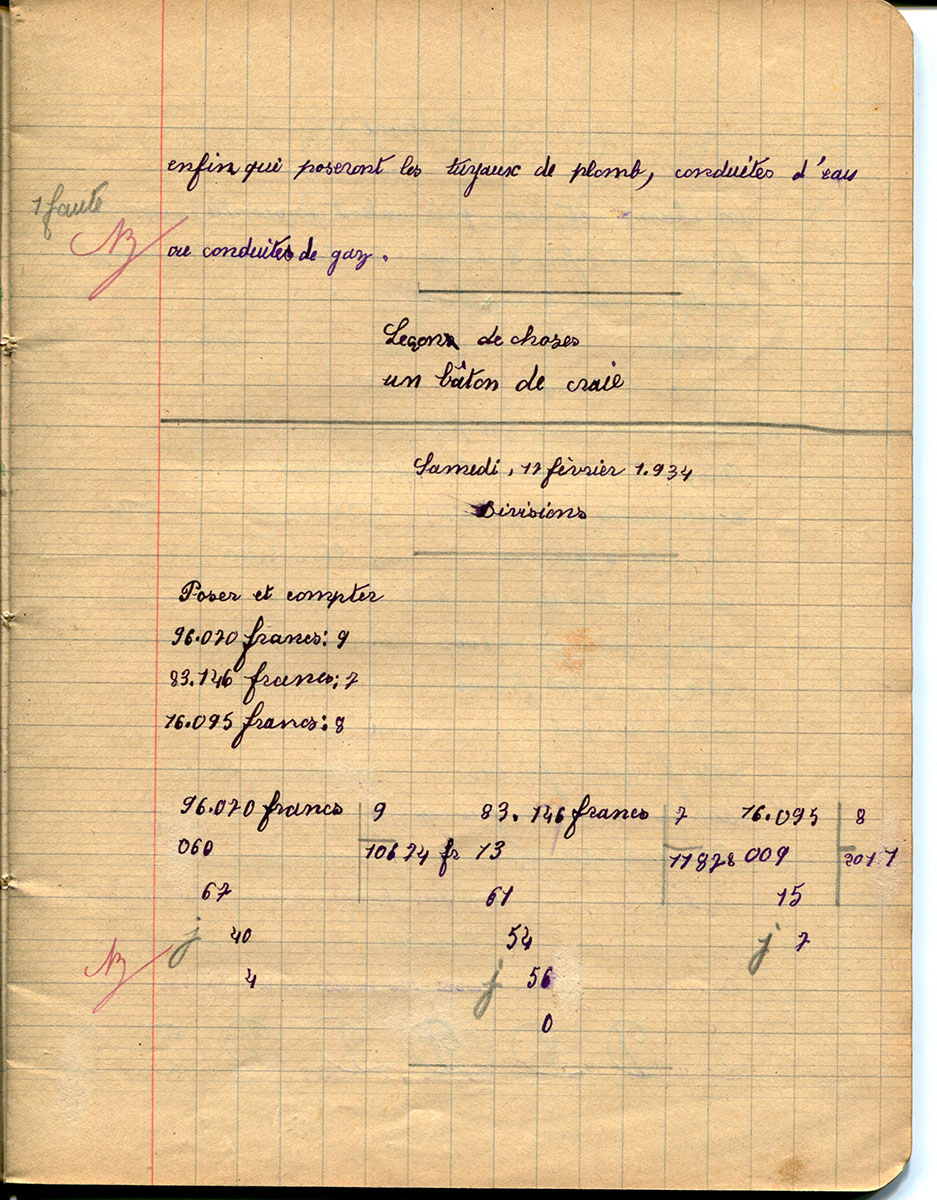 enfin qui poseront les tuyaux de plomb, conduites d'eau
1 faute
ou conduites de gaz.
Leçons de choses
un bâton de craie
Samedi, 17 février 1.934
Divisions
Poser et compter
96.070 francs : 9
83.146 francs : 7
16.095 francs : 8
96.070 francs 9 83.146 francs 7 16.095 8
060 10674 fr 13 11878 009 2011
67 61 15
j 40 54 j 7
4 j 56
0